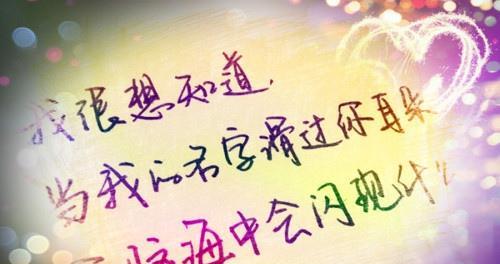 我很想知道,
当我的名字滑过你耳朵
脑海中会闪现什